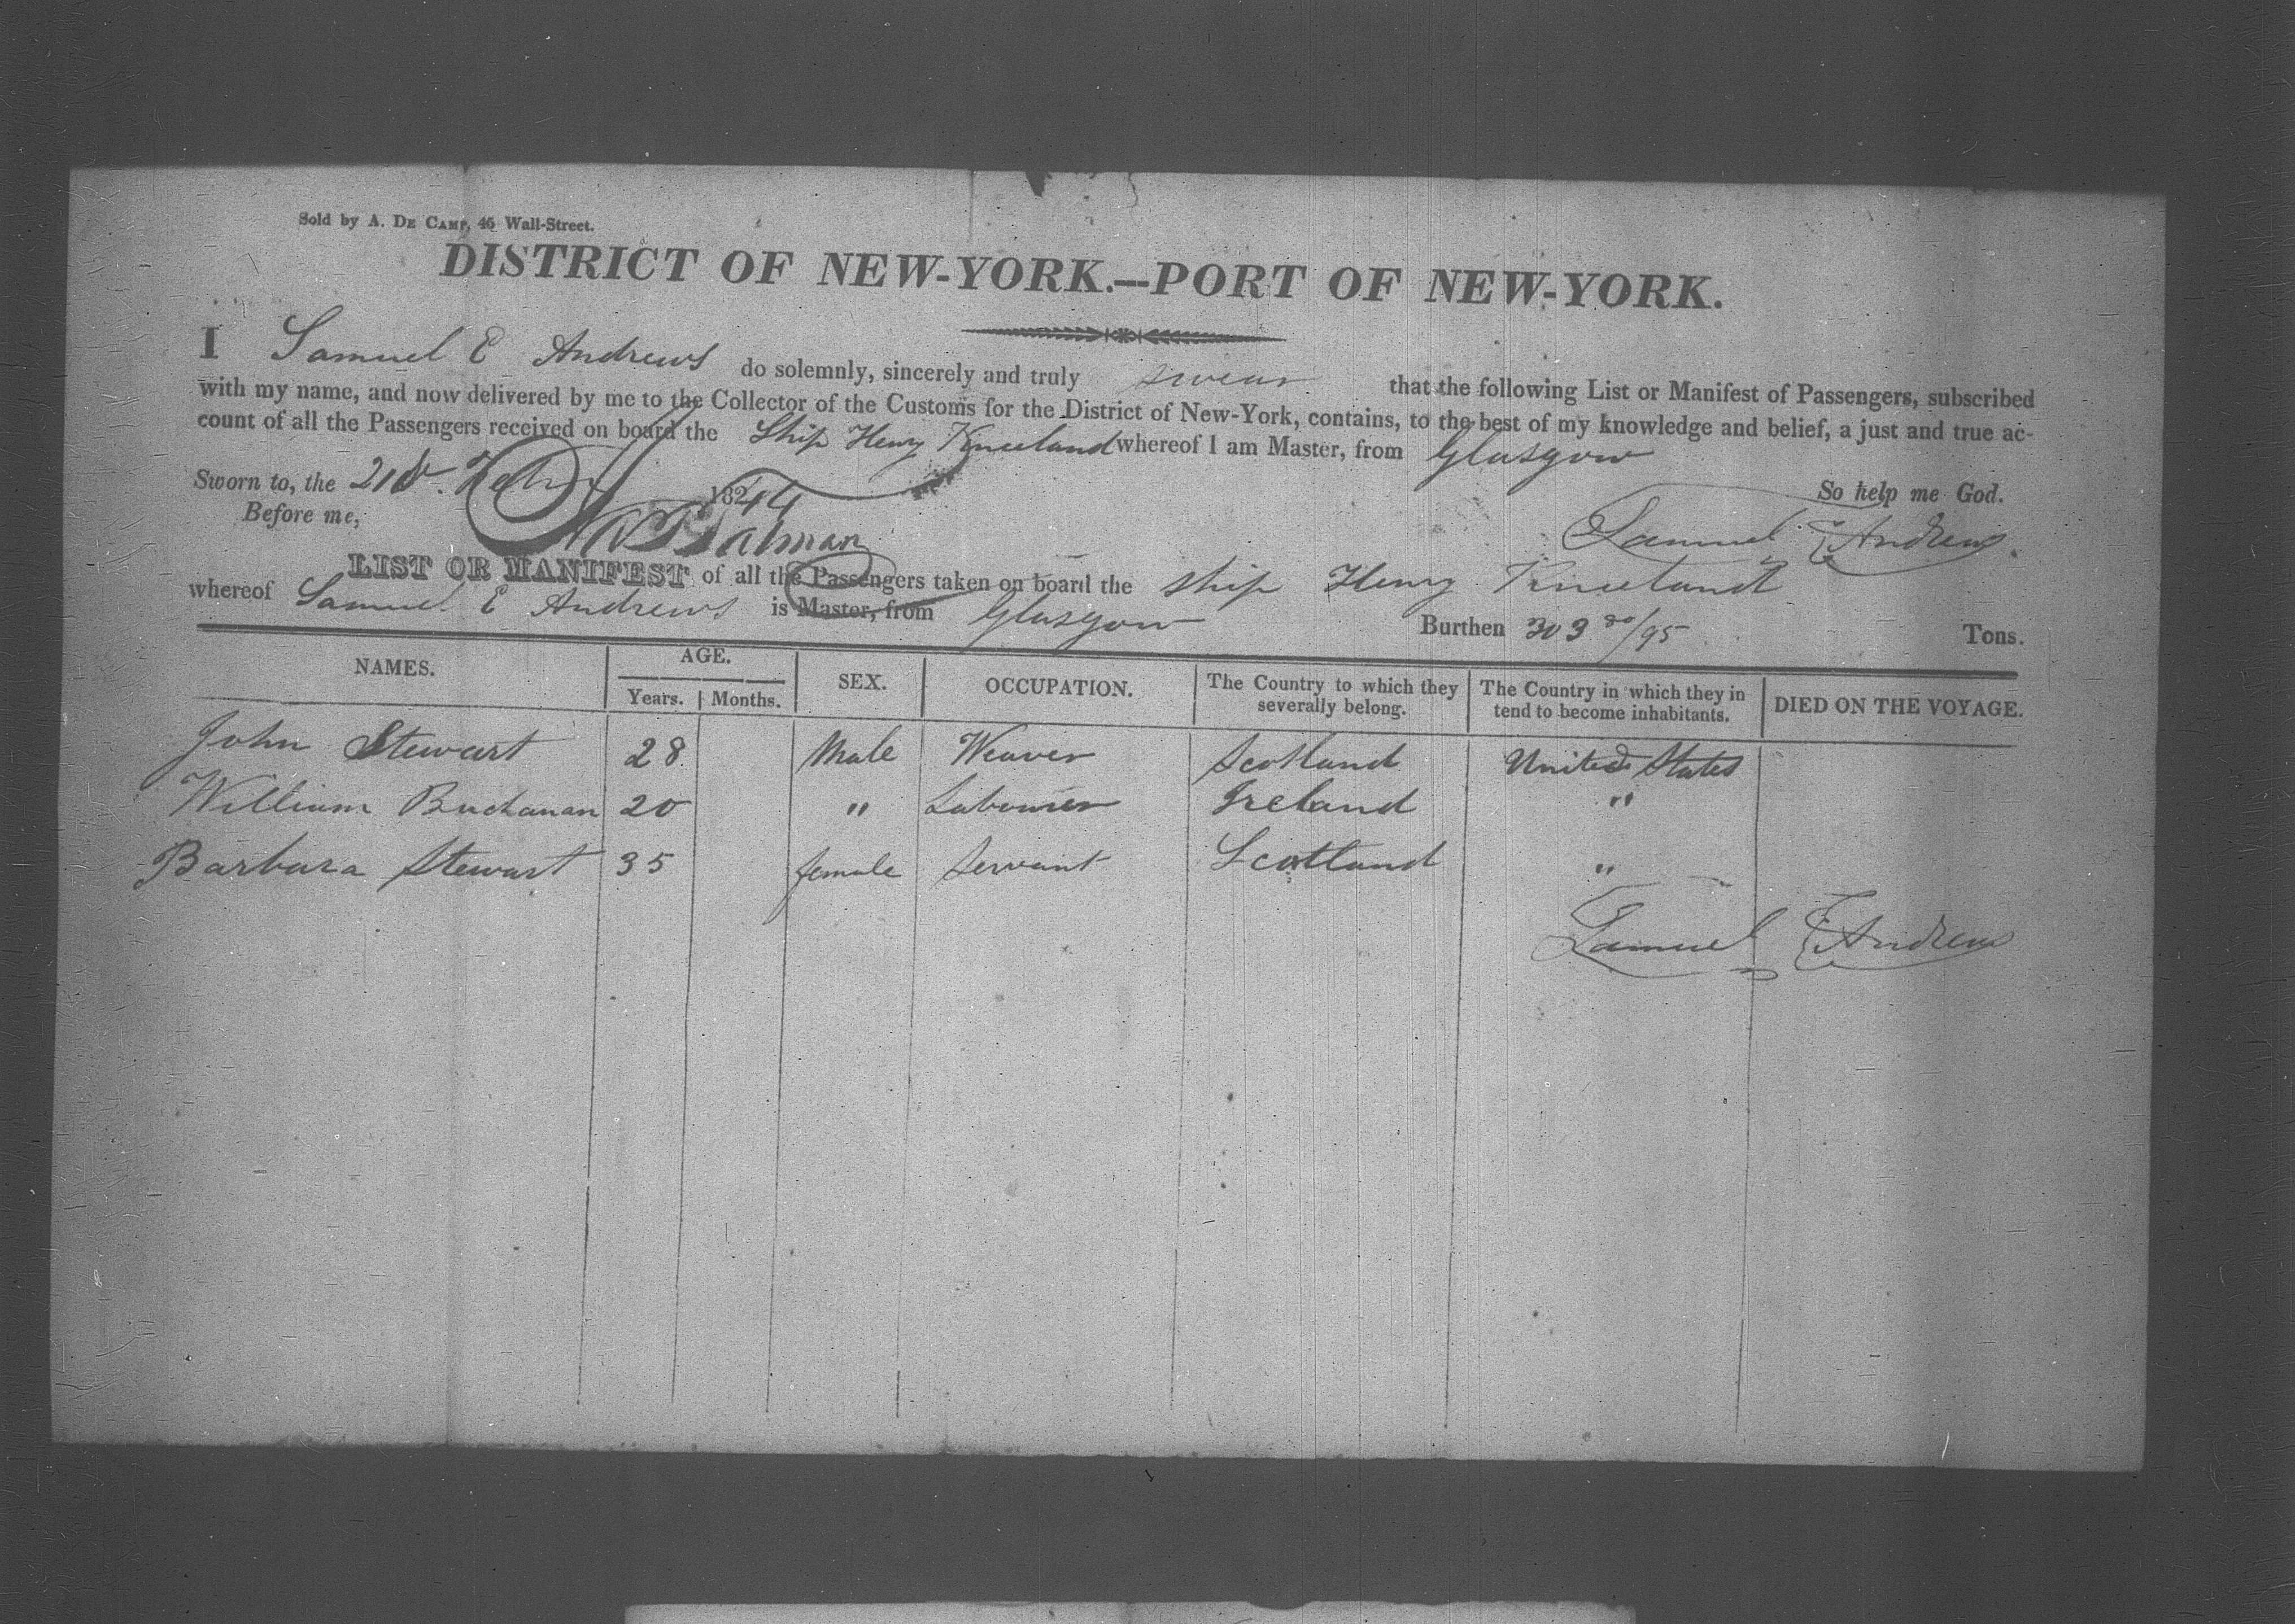 Sold by A. DE CAMP, 45 Wall-Street.
DISTRICT OF NEW-YORK.—PORT OF NEW-YORK.
I Samuel E Andrews do solemnly, sincerely and truly swear that the following List or Manifest of Passengers, subscribed
with my name, and now delivered by me to the Collector of the Customs for the District of New-York, contains, to the best of my knowledge and belief, a just and true ac-
count of all the Passengers received on board the Ship Henry Kneeland whereof I am Master, from Glasgow
Sworn to, the 21st. Feby 1824 So help me God.
Before me, Samuel E Andrews.
LIST OR MANIFEST of all the Passengers taken on board the ship Henry Kneeland
whereof Samuel E Andrews is Master, from Glasgow Burthen 303 80/95 Tons.
NAMES. AGE. SEX. OCCUPATION. The Country to which they severally belong. The Country in which they in tend to become inhabitants. DIED ON THE VOYAGE.
Years. Months.
John Stewart 28 Male Weaver Scotland United States
William Buchanan 20 " Labourer Ireland "
Barbara Stewart 35 female Servant Scotland "
Samuel E Andrews